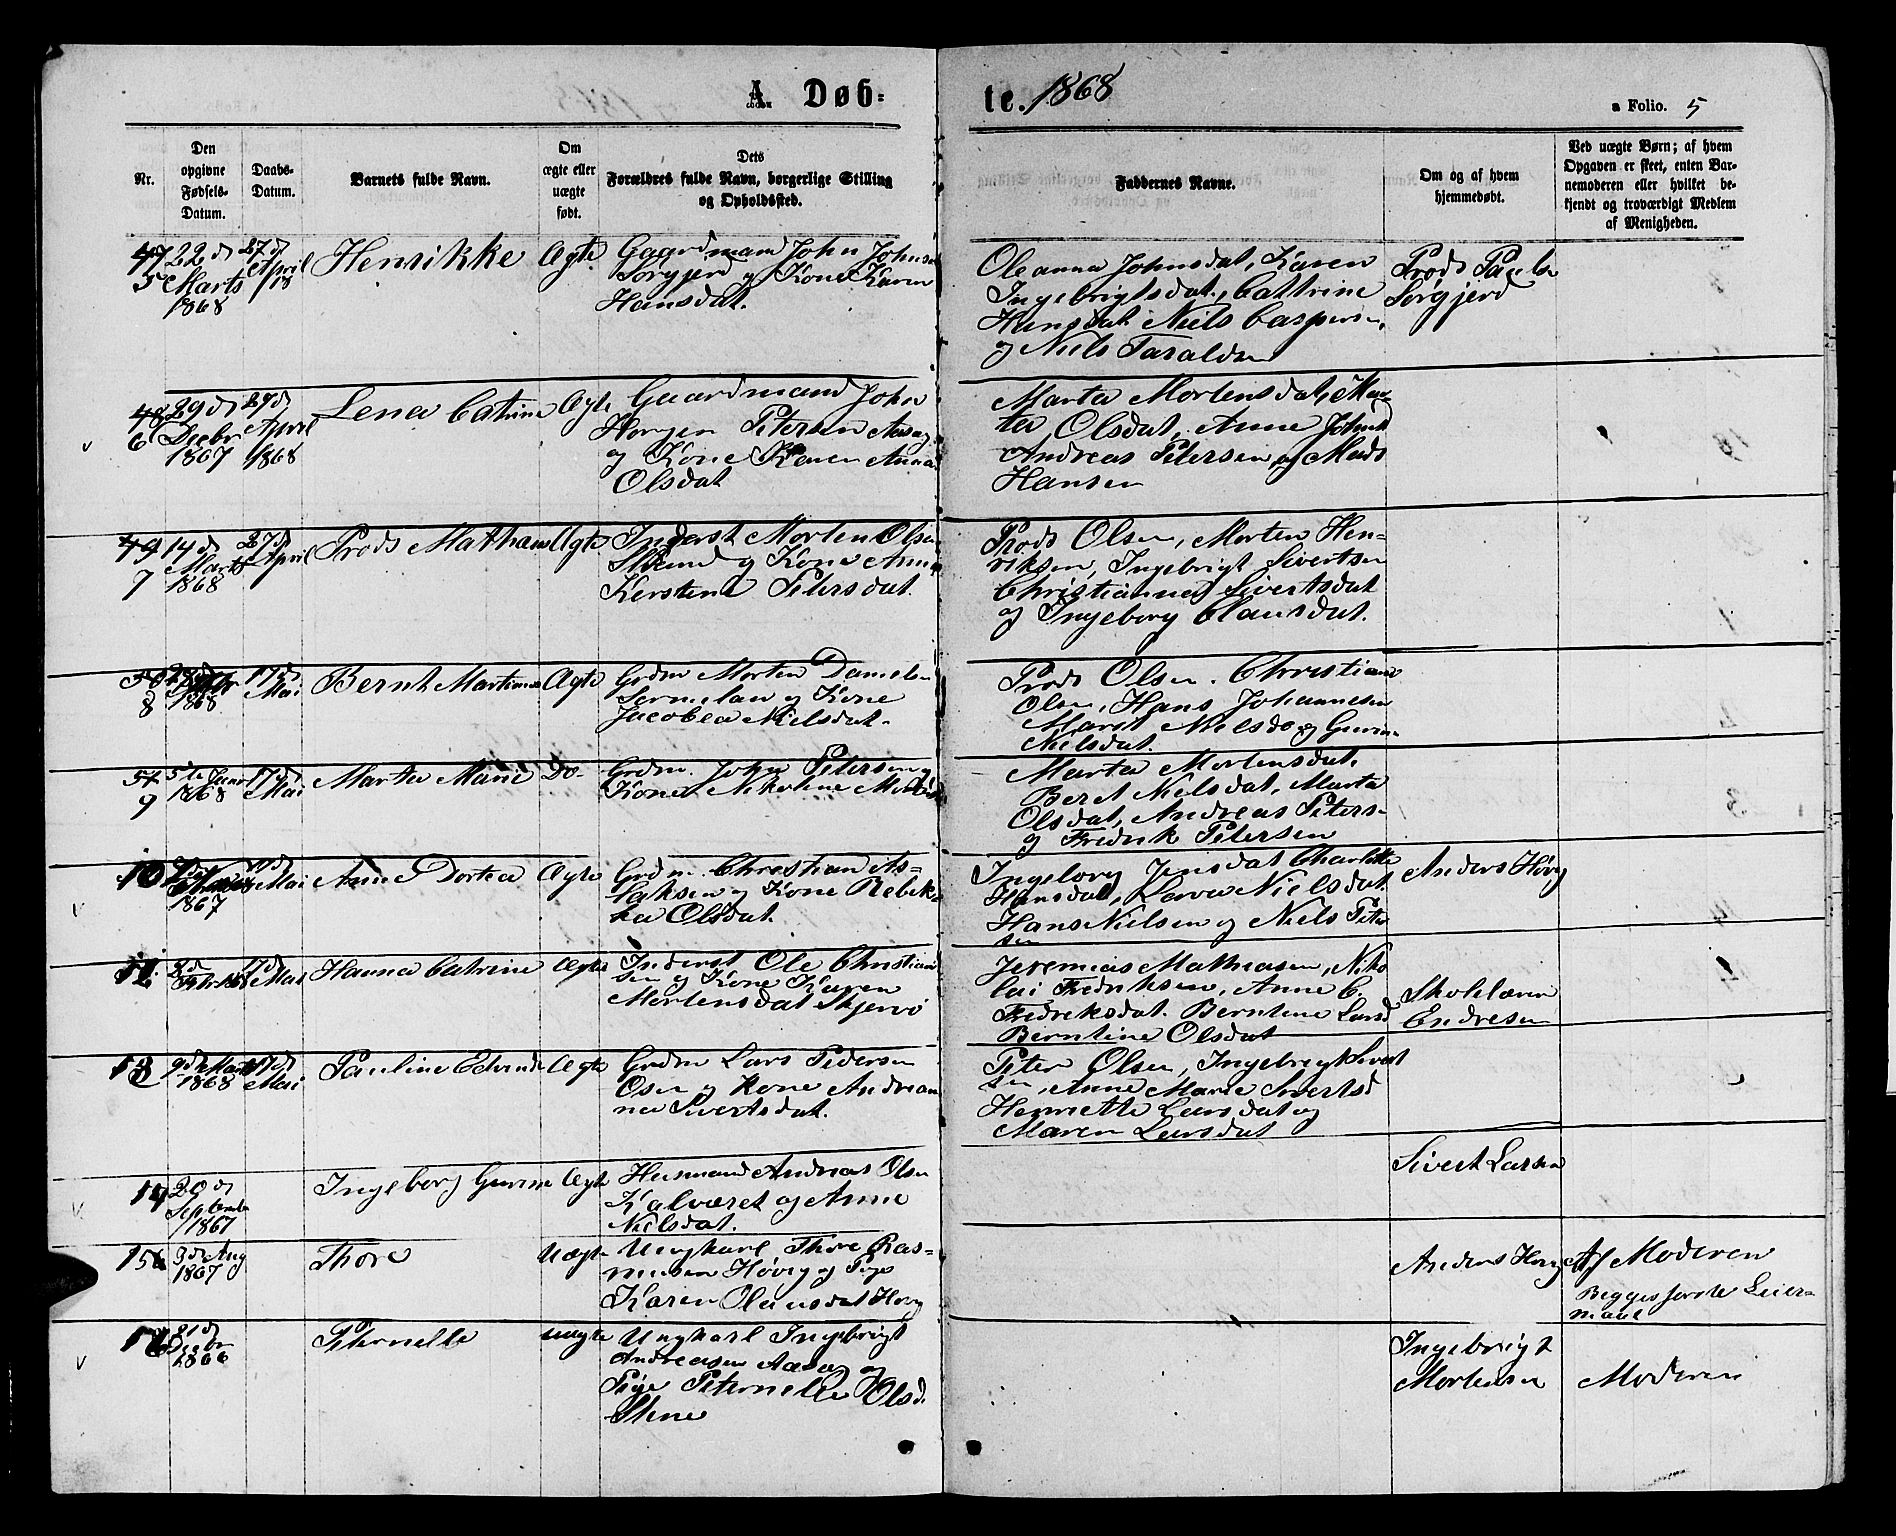 A. Døb=
te. 1868
a Folio. 5
Nr.
Den
opgivne
Fødsels-
Datum.
Daabs-
Datum.
Barnets fulde Navn.
Om
ægte eller
uægte
født.
Dets
Forældres fulde Navn, borgerlige Stilling
og Opholdssted.
Faddernes Navne.
Om og af hvem
hjemmedøbt.
Ved uægte Børn; af hvem
Opgaven er skeet, enten Bar-
nemoderen eller hvilket be-
kjendt og troværdigt Medlem
af Menigheden.
47
5
22 d
Marts
1868
27 d
April
Henrikke
Ægte
Gaardmand John Johns
Sørgjerd og Kone Karen
Hansdat.
Oleanna Johnsdat, Karen
Ingebrigtsdat., Cattrine
Hansdat Niels Caspersen,
og Niels Taraldsen
Prods Paulse
Sørgjerd
48
6
29 d
Decbr
1867
27 d
April
1868
Lena Catrine
Ægte
Gaardmand John
Horgen Petersen Aasag
og Kone Karen Anna
Olsdat
Marta Mortensdat, Mar-
ta Olsdat, Anne Johnsd
Andreas Petersen og Mads
Hansen
49
7
14 d
Marts
1868
27 d
April
Prods Mathæus
Ægte
Inderst Morten Olsen
og Kone Anne
Kerstine Petersdat.
Prods Olsen, Morten Hen=
riksen, Ingebrigt Sivertsen
Christianna Sivertsdat
og Ingeborg Clausdat.
50
8
1868
17 d
Mai
Bernt Martinus
Ægte
Grdm Morten Daniels
og Kone
Jacobea Nielsdat.
Prods Olsen. Christian
Olsen, Hans Johannesen
Marit Nielsd og Gurine
Nielsdat.
51
9
5te Januar
1868
17 d
Mai
Marta Marie
Do-
Grdm. John Petersen og
Kone Nikoline
Marta Mortensdat,
Beret Nielsdat, Marta
Olsdat, Andreas Peters-
og Fredrik Petersen
10
1867
17 d
Mai
Anne Dortea
Ægte
Grdm. Christian As-
laksen og Kone Rebek-
ka Olsdat.
Ingeborg Jensdat Charlotte
Hansdat, Lava Nielsdat
Hans Nielsen og Niels Peter
sen
Anders Høvig
8 d
17 d
Mai
Hanna Catrine
Ægte
Inderst Ole Christian
sen og Kone Karen
Mortensdat Skjervø
Jeremias Mathiasen, Niko
lai Fredriksen, Anne C.
Fredriksdat. Berntine Larsd
Berntine Olsdat
Skolelærer
Endresen
13
9 d Marts
1868
17 d
Mai
Pauline Edvinde
Ægte
Grdm Lars Pedersen
Osen og Kone Andrian
na Sivertsdat.
Peter Olsen, Ingebrigt Sivert
sen, Anne Marie Sivertsd
Henriette Larsdat og
Maren Larsdat
14
20 d
September
1867
Ingeborg Gurine
Ægte
Husmand Andreas Olsen
Kalværet og Anne
Nielsdat.
Sivert Larsen
15
9 d Aug
1867
Thore
Uægte
Ungkarl Thore Ras=
musen Høvig og Pige
Karen Oleausdat Hovg
Anders Hovig
Af Moderen
Begges første Leier=
maal
31 d
Decbr
1866
Peternelle
uægte
Ungkarl Ingebrigt
Andreasen Aasag og
Pige Peternelle Olsd.
Stene
Ingebrigt
Mortensen
Moderen